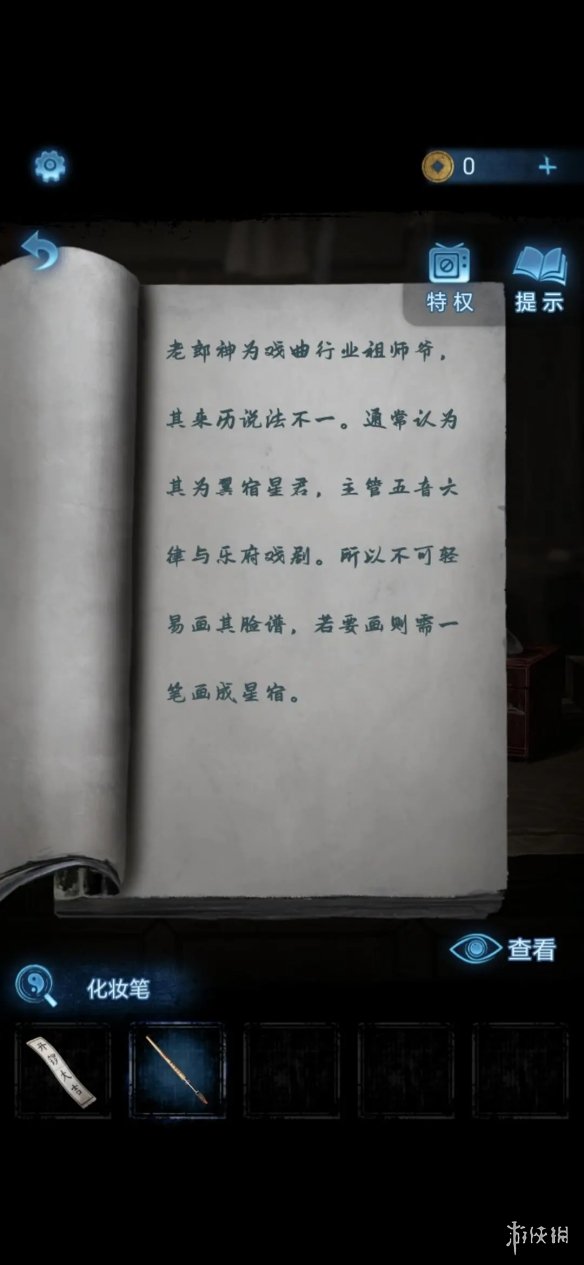 0
特权
提示
老郎神为戏曲行业祖师爷，
其来历说法不一。通常认为
其为翼宿星君，主管五音六
律与乐府戏剧。所以不可轻
易画其脸谱，若要画则需一
笔画成星宿。
查看
化妆笔
开锣大吉
游侠网